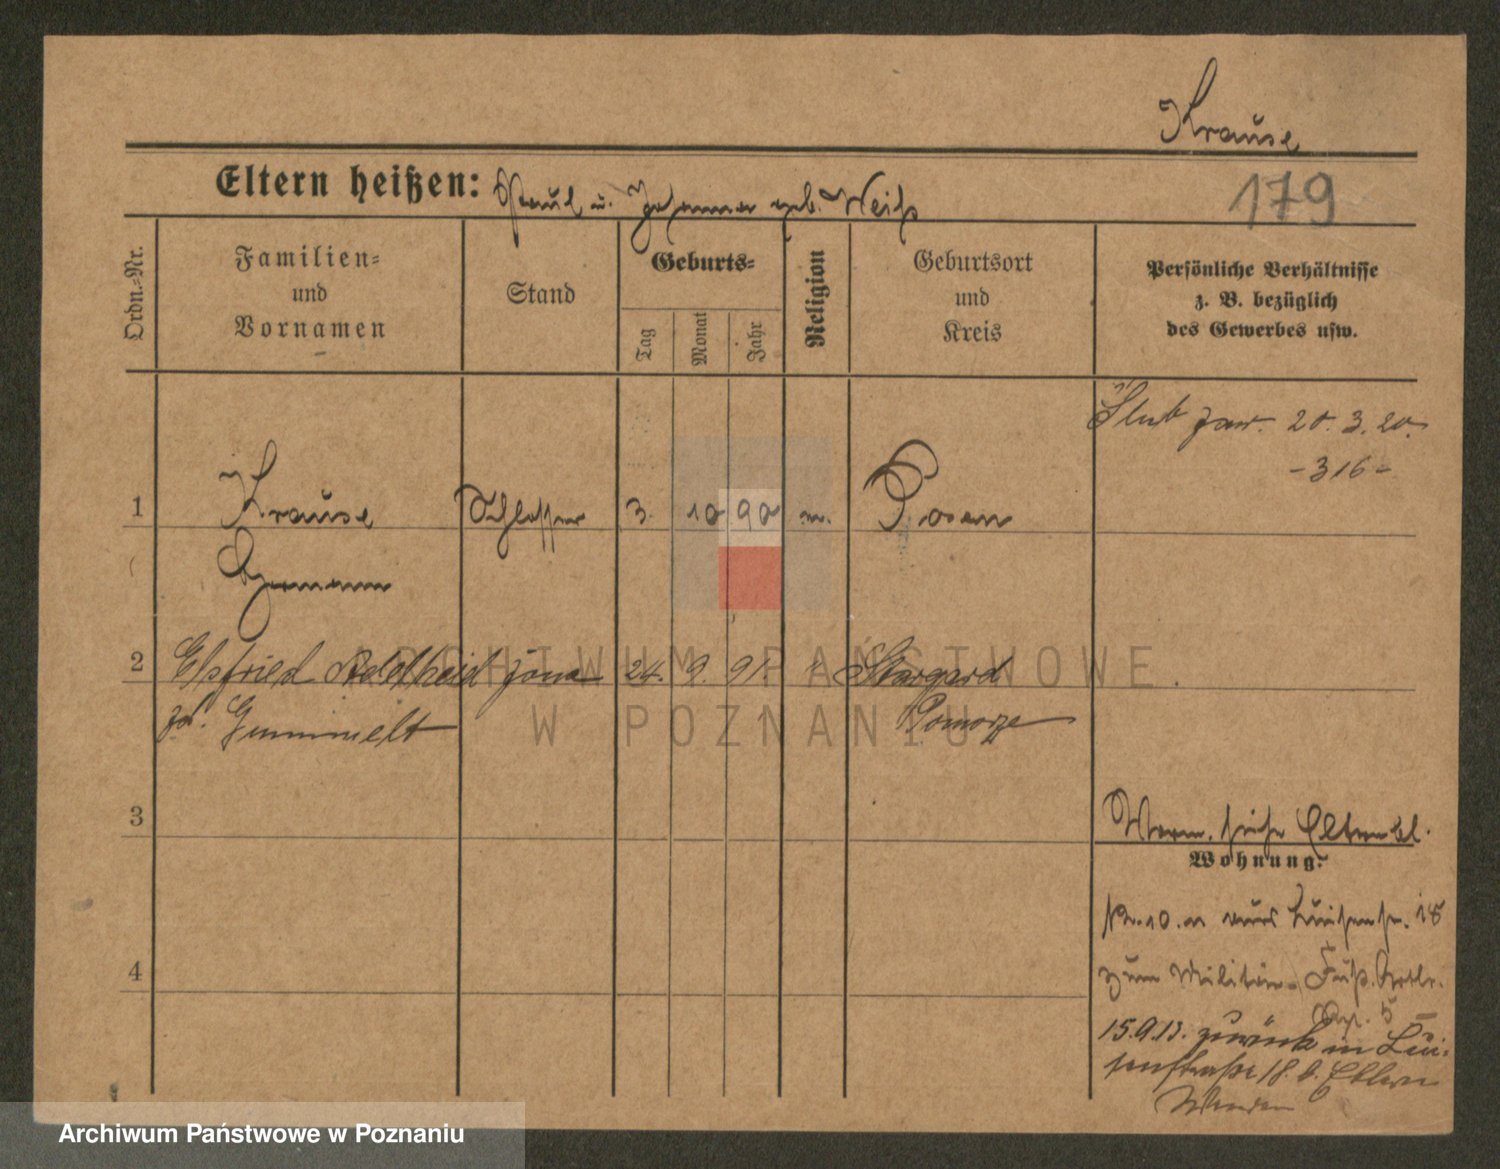 Krause
Eltern heißen: Paul u. Johanna geb. Weiß
179
Ordn.-Nr.
Familien-
und
Vornamen
Stand
Geburts-
Tag
Monat
Jahr
Religion
Geburtsort
und
Kreis
Persönliche Verhältnisse
z. B. bezüglich
des Gewerbes usw.
Ślub zaw. 20. 3. 20.
- 316 -
1 Krause Schlosser 3. 10 90 Posen
Hermann
2 Elsfried Adelheid żona 24. 9. 91. " Stargard
Gummelt Pomorze
3
Wohnung:
4
zum Militär - Fuß. Artl.
Rgt. 5
15.9.13. zurück in Lui-
senstraße 18 b. Eltern
ARCHIWUM PAŃSTWOWE
W POZNANIU
Archiwum Państwowe w Poznaniu